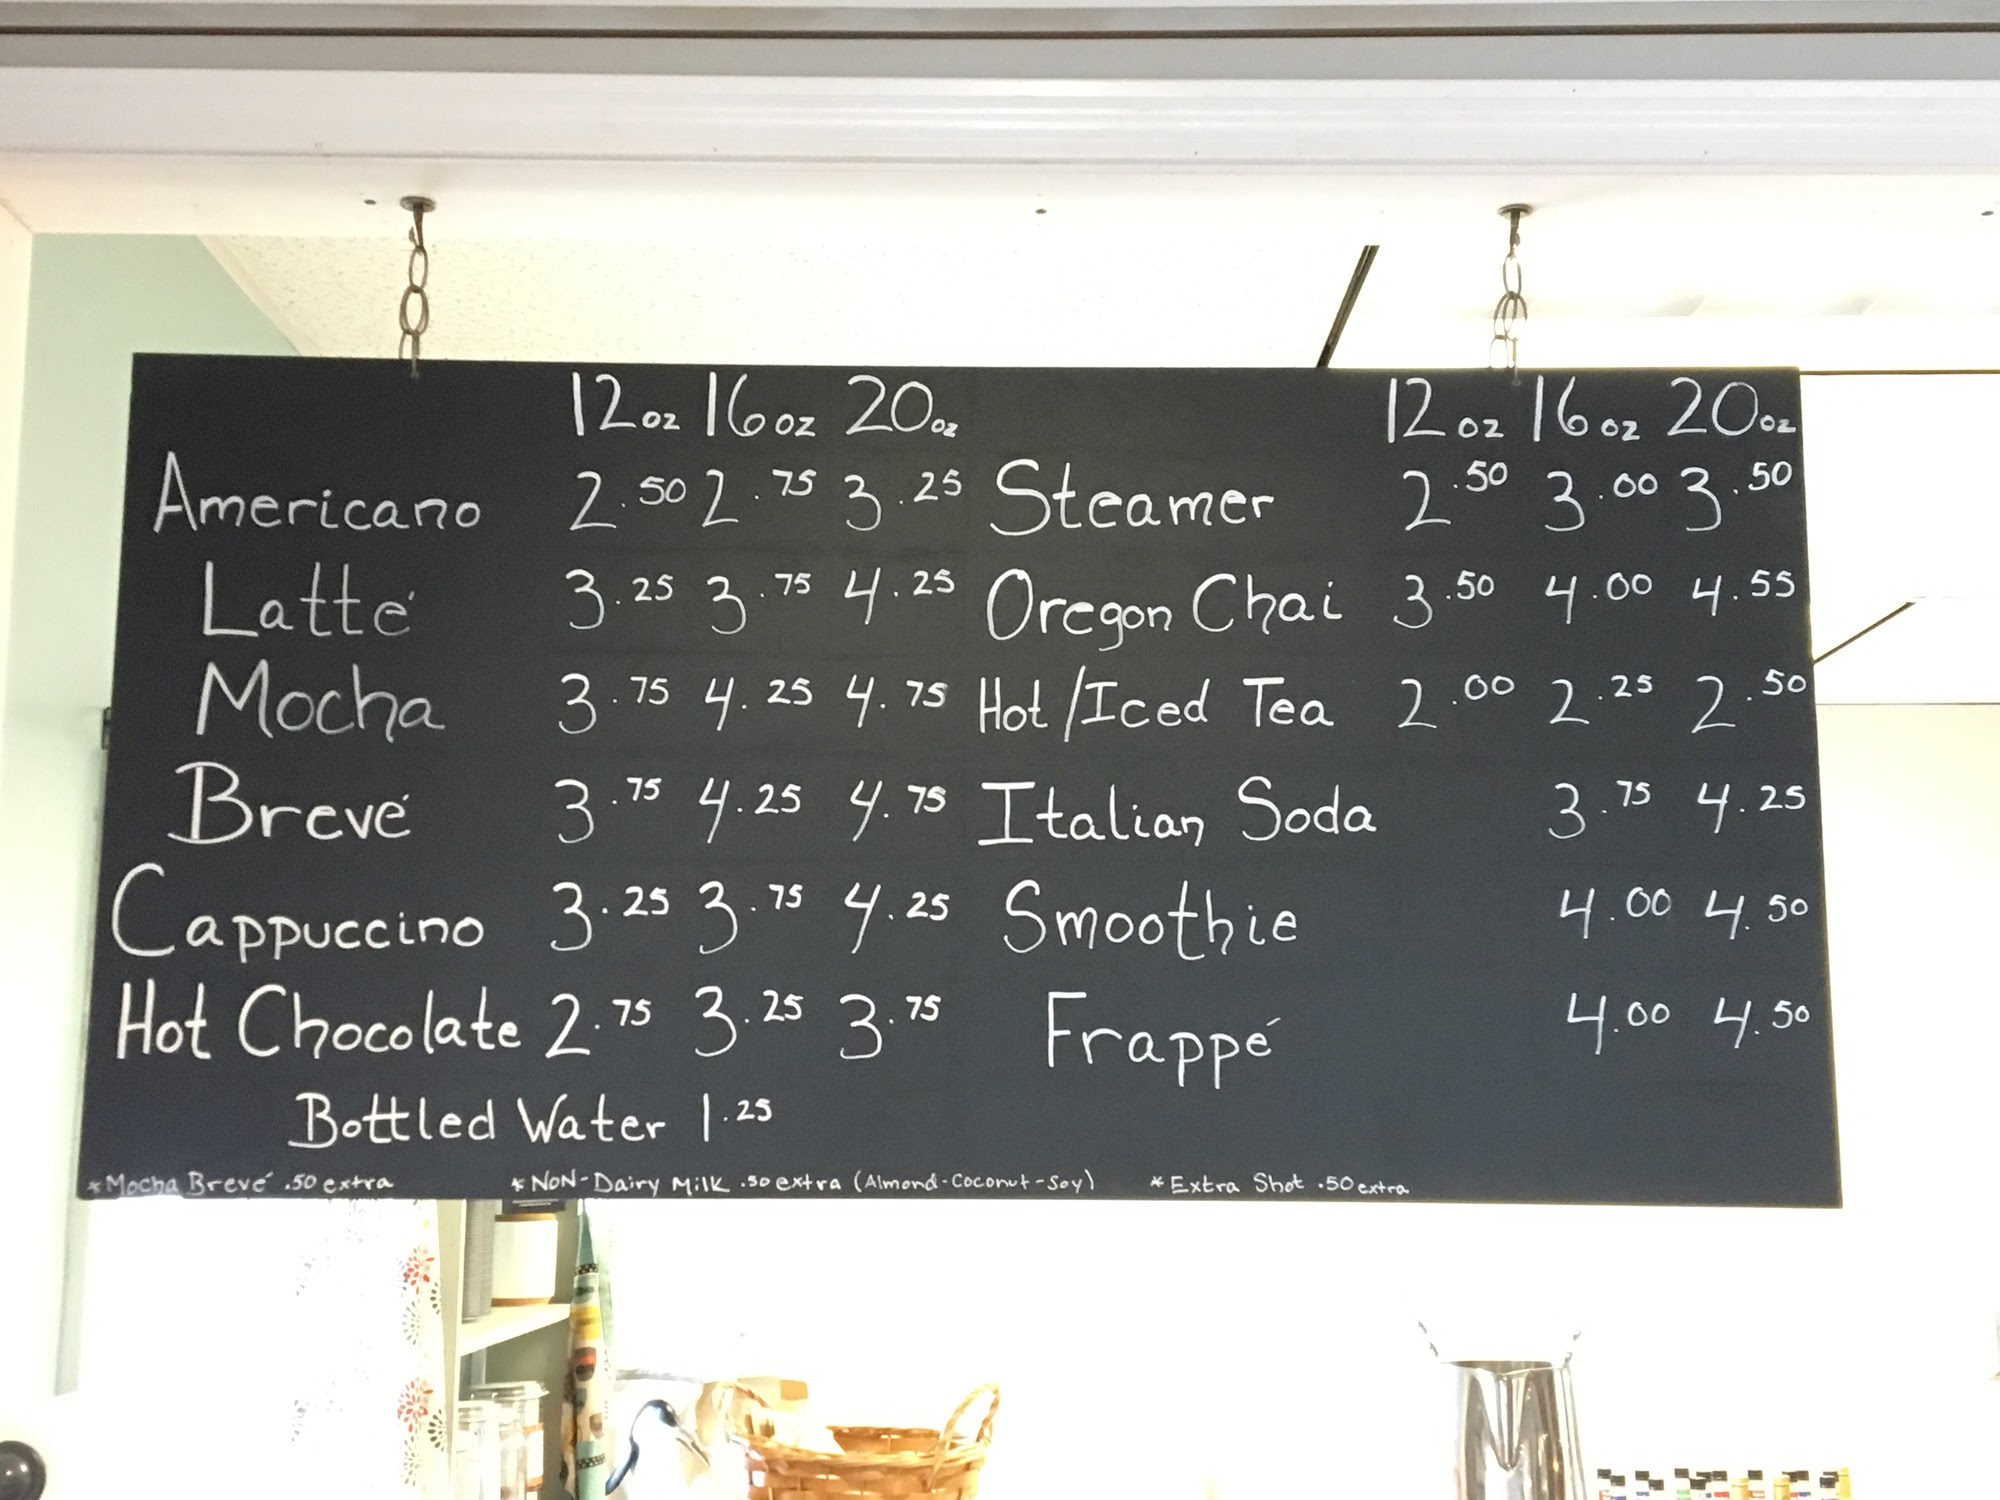 12oz 16oz 20oz
Americano 2.50 2.75 3.25
Latté 3.25 3.75 4.25
Mocha 3.75 4.25 4.75
Brevé 3.75 4.25 4.75
Cappuccino 3.25 3.75 4.25
Hot Chocolate 2.75 3.25 3.75
Bottled Water 1.25
12oz 16oz 20oz
Steamer 2.50 3.00 3.50
Oregon Chai 3.50 4.00 4.55
Hot/Iced Tea 2.00 2.25 2.50
Italian Soda 3.75 4.25
Smoothie 4.00 4.50
Frappé 4.00 4.50
*Mocha Brevé .50 extra *Non-Dairy Milk .50 extra (Almond-Coconut-Soy) *Extra Shot .50 extra